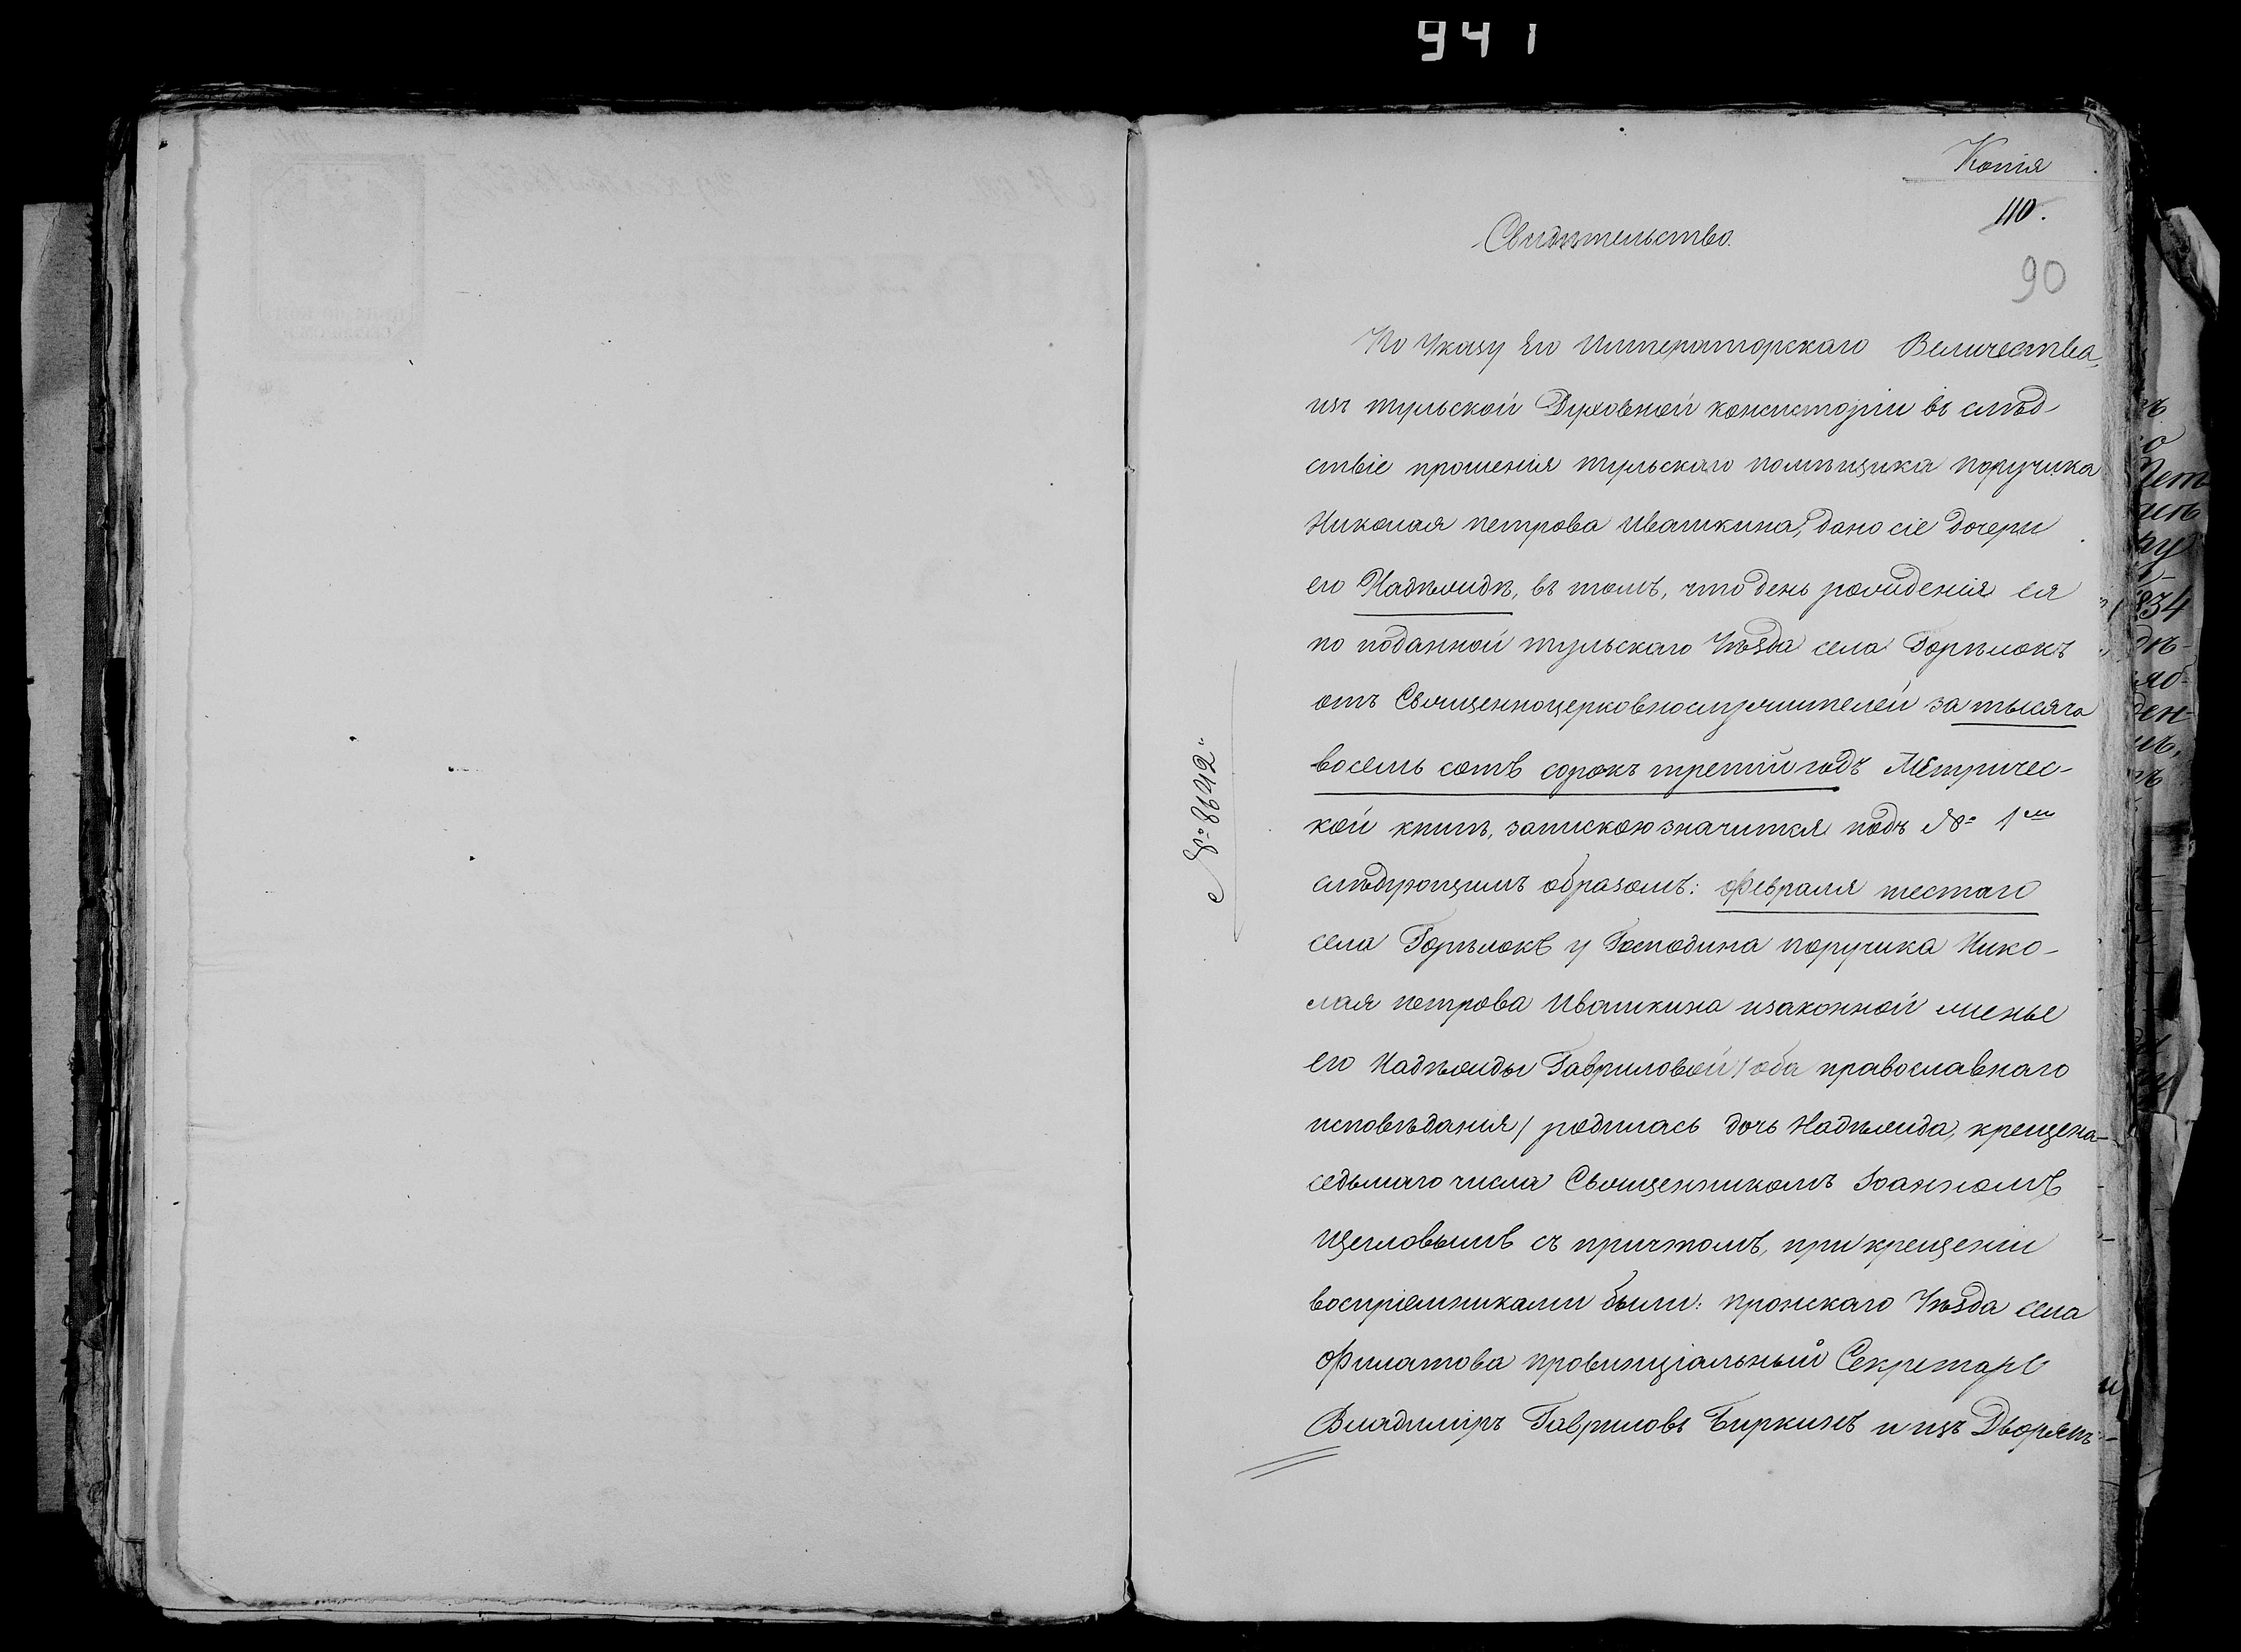 941
Копія
110.
Свидѣтельство.
90
По Указу Его Императорскаго Величества,
изъ тульской Духовной консисторіи въ слѣд-
ствіе прошенія тульскаго помѣщика поручика
Николая петрова Ивашкина, дано сіе дочери
его Надѣждѣ, въ томъ, что день рожденія ея
по поданной тульскаго Уѣзда села Горѣлокъ
отъ Священноцерковнослужителей за тысяча
восемь сотъ сорокъ третій годъ Метричес-
кой книгѣ, запискою значится подъ № 1м
слѣдующимъ образомъ: февраля шестаго
села Горѣлокъ у Господина поручика Нико-
лая петрова Ивашкина и законной жены
его Надѣжды Гавриловой / оба православнаго
исповѣданія / родилась дочь Надѣжда, крещена
седьмаго числа Священникомъ Іоанномъ
Щегловымъ съ причтомъ, при крещеніи
воспріемниками были: пронскаго Уѣзда села
Филатова провинціальный Секретарь
Владиміръ Гавриловъ Биркинъ и изъ Дворянъ
№ 8642
834